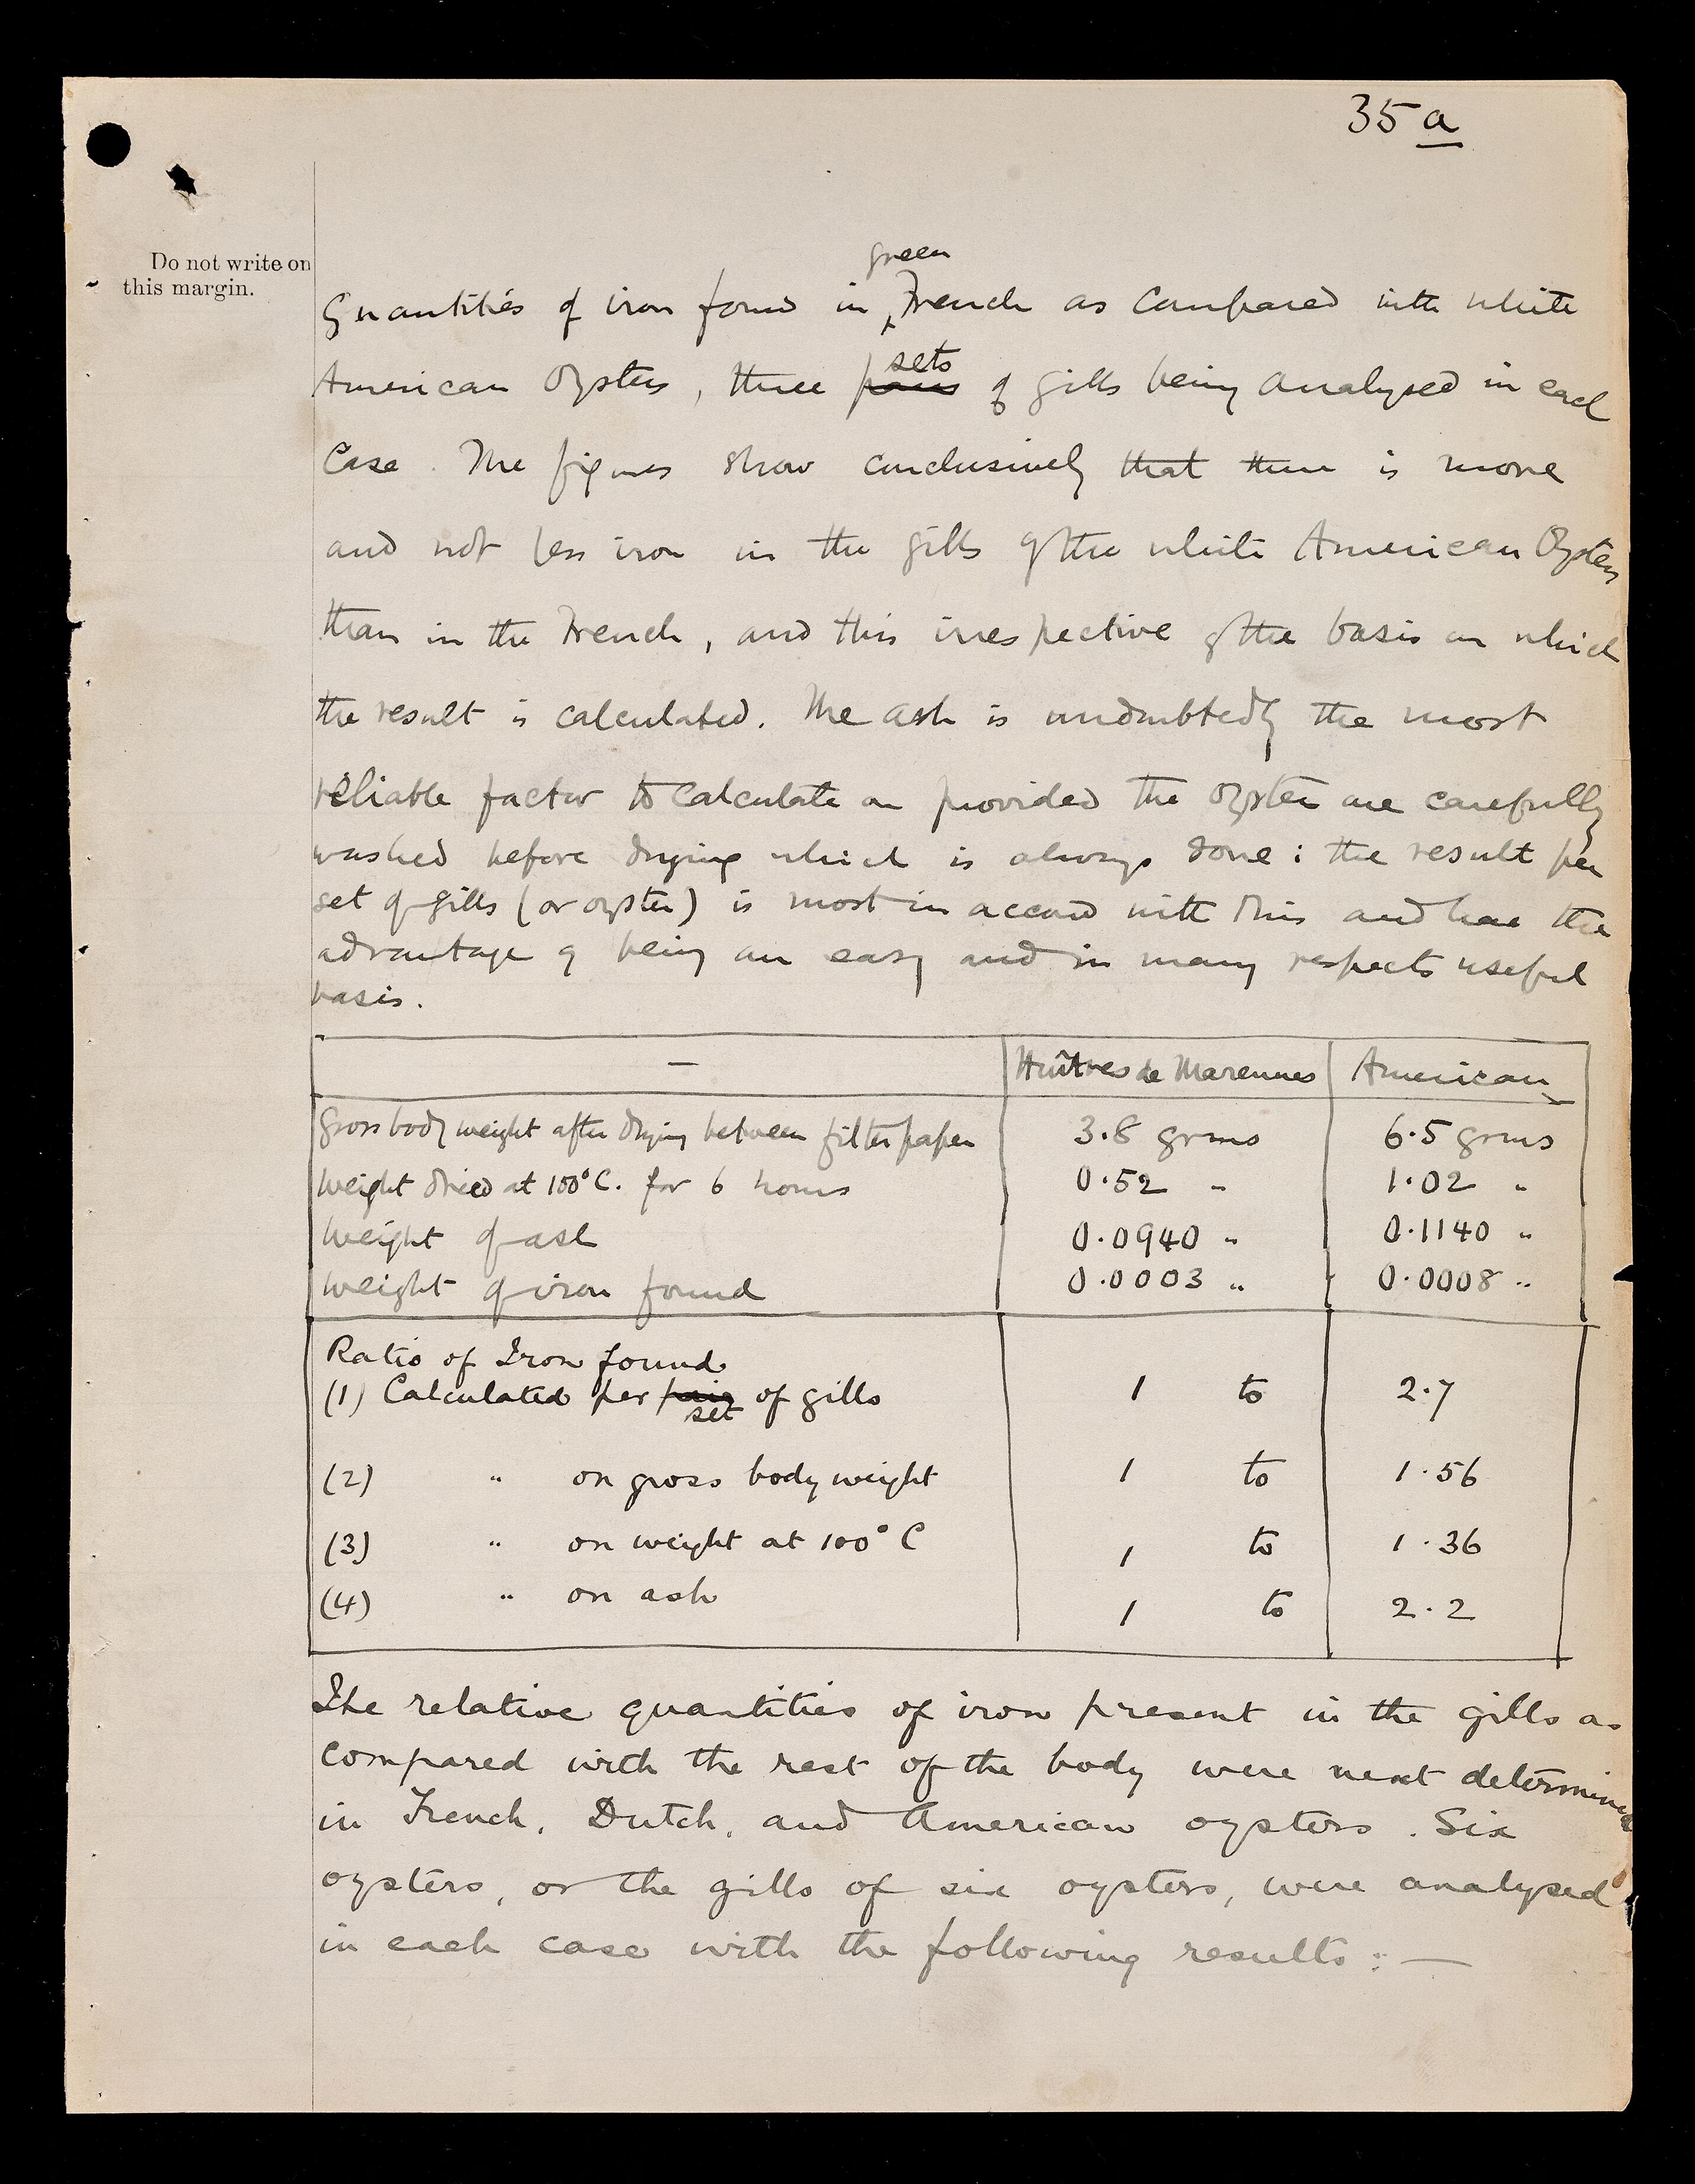 35 a
Do not write on
this margin.
green
Quantities of iron found in French as compared with white
sets
American Oysters, three pairs of gills being analysed in each
Case. The figures show conclusively that there is more
and not less iron in the gills of the white American Oysters
than in the French, and this irrespective of the basis on which
the result is calculated. The ash is undoubtedly the most
reliable factor to calculate on provided the oyster are carefully
washed before drying which is always done : the result per
set of gills (or oyster) is most in accord with this and has the
advantage of being an easy and in many respects useful
basis.
— Huîtres de Marennes American
Gross body weight after drying between filter paper 3.8 grms 6.5 grms
Weight dried at 100°C. for 6 hours 0.52 " 1.02 "
Weight of ash 0.0940 " 0.1140 "
Weight of iron found 0.0003 " 0.0008 "
Ratio of Iron found
(1) Calculated per pair of gills 1 to 2.7
set
(2) " on gross body weight 1 to 1.56
(3) " on weight at 100° C 1 to 1.36
(4) " on ash 1 to 2.2
The relative quantities of iron present in the gills as
compared with the rest of the body were next determined
in French, Dutch, and American oysters. Six
oysters, or the gills of six oysters, were analysed
in each case with the following results : —